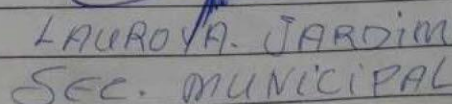 LAURO A. JARDIM
SEC. MUNICIPAL